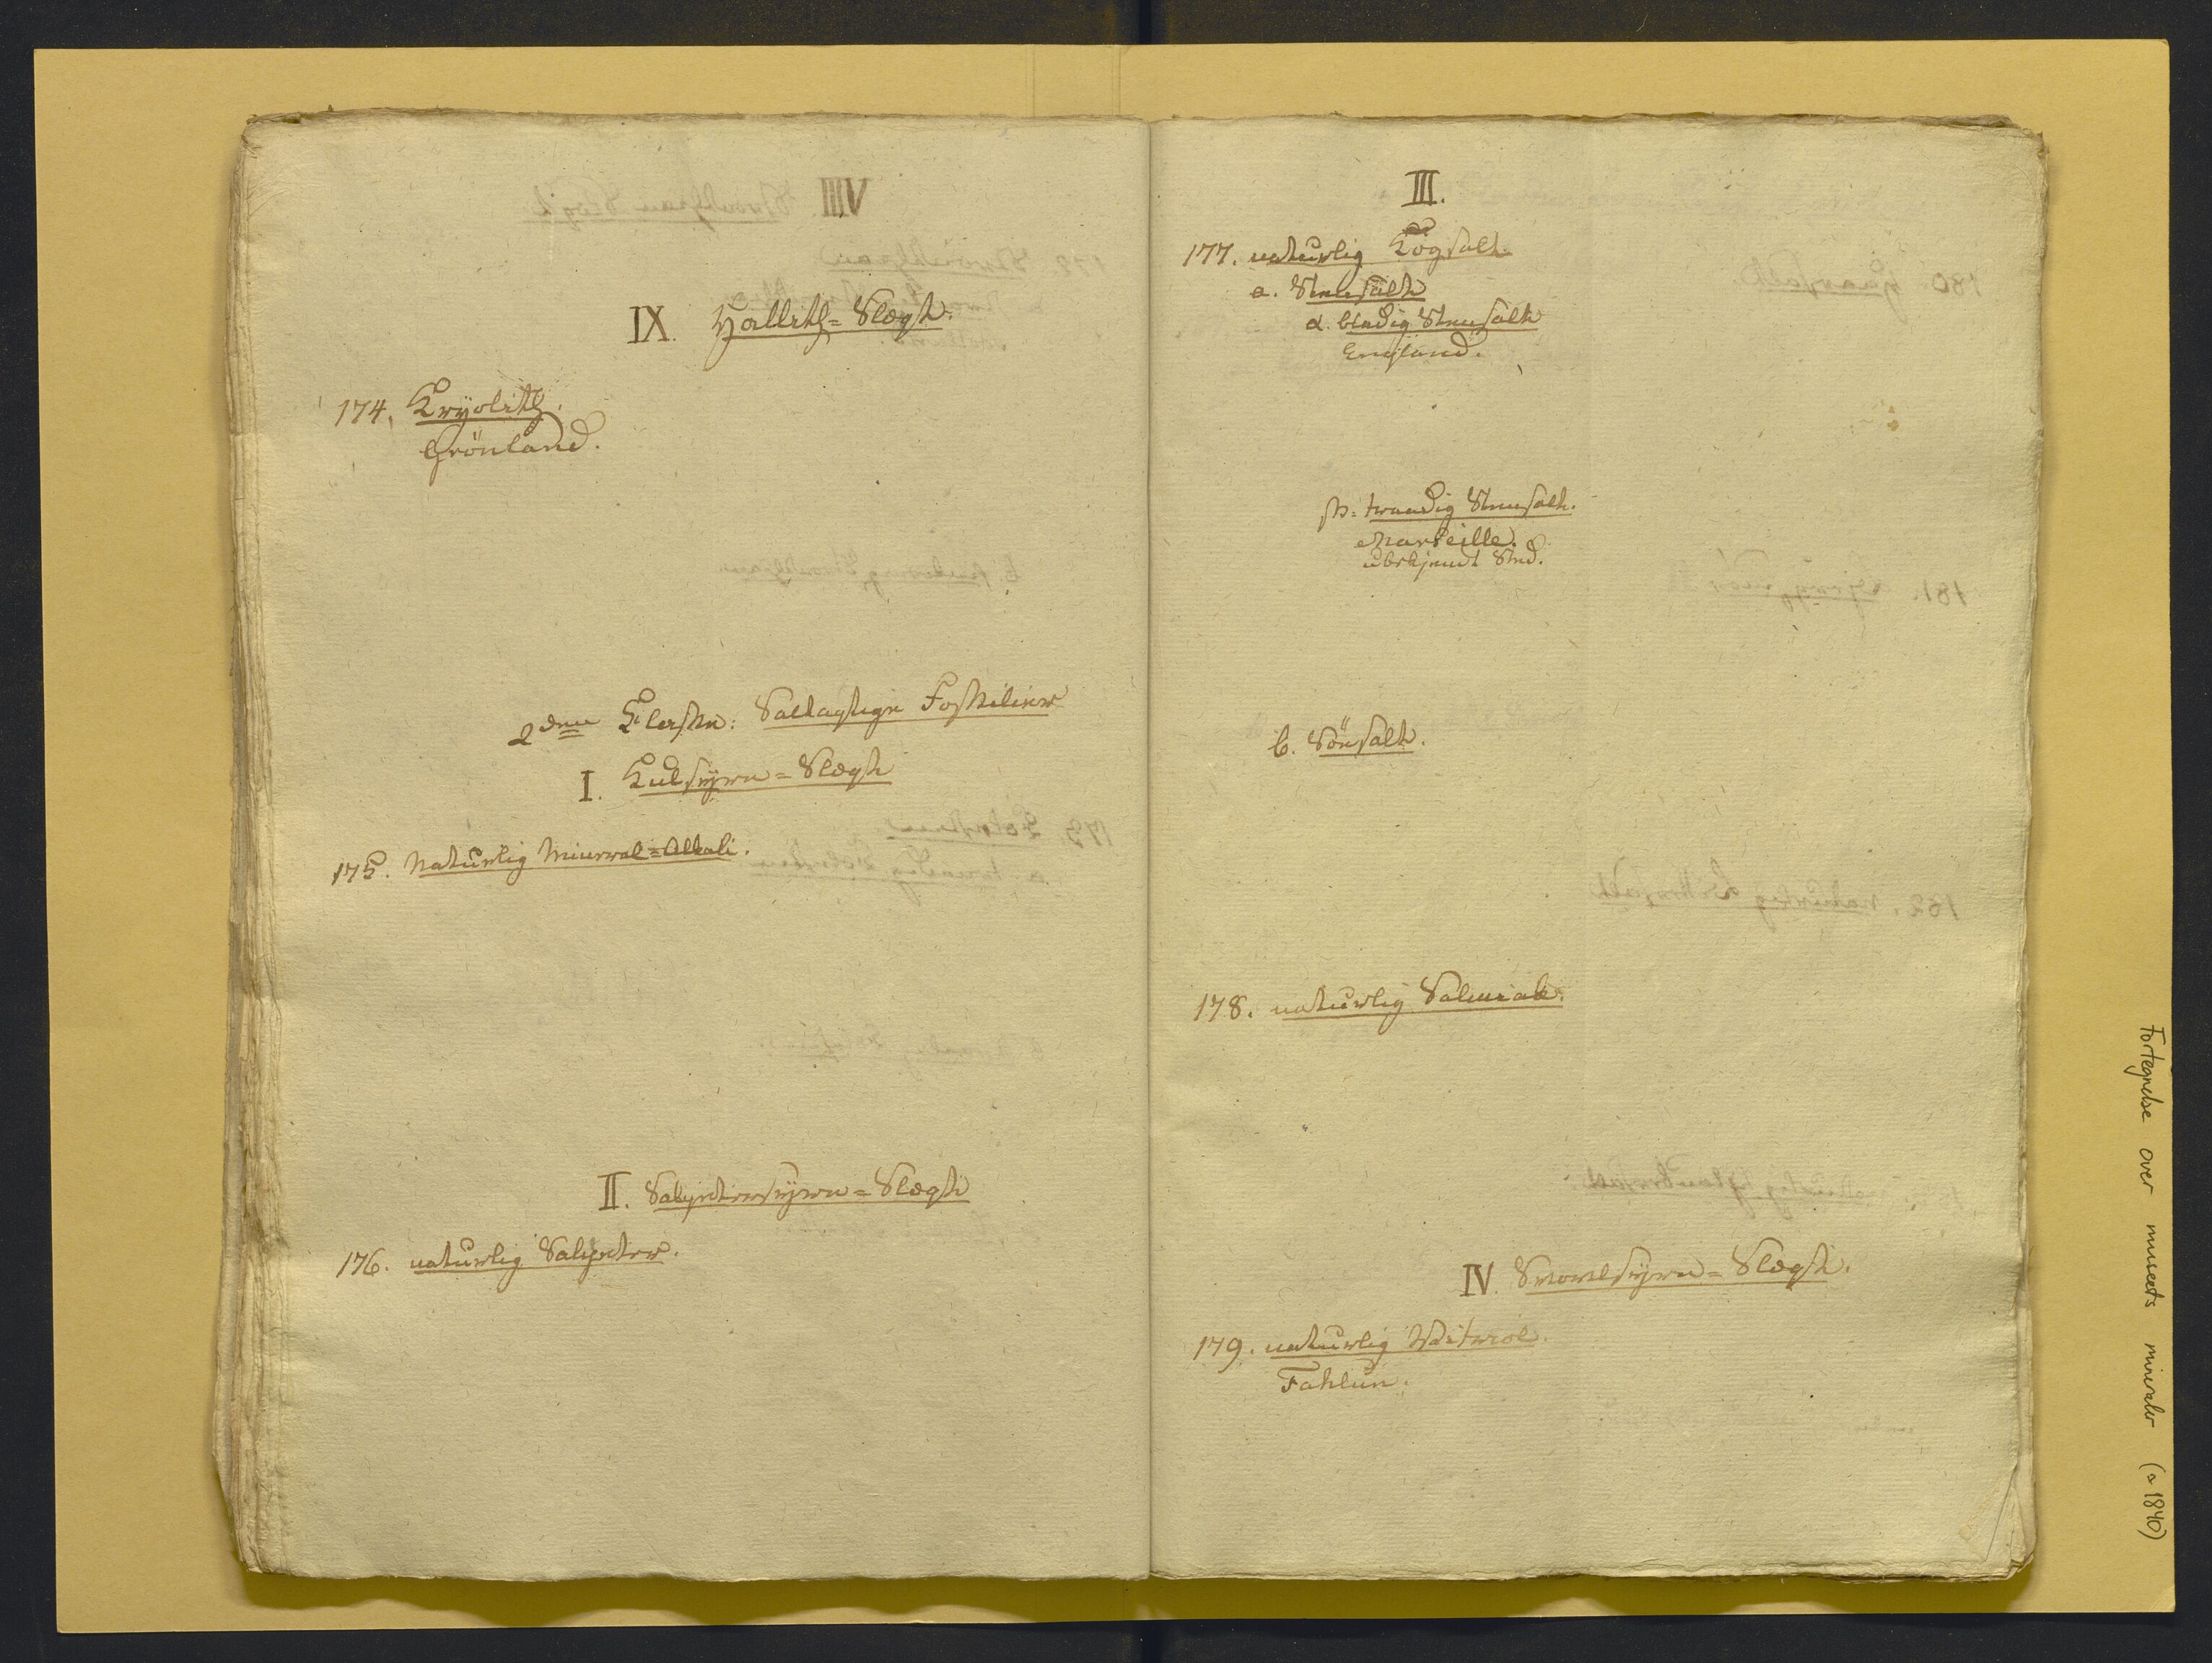 IX. Hallith=Slægt.
174. Kryolith.
Grönland.
2den Klasse: Saltagtige Fossilier
I. Kulsyre=Slægt
175. Naturlig Mineral=Alkali.
II. Salpetersyre=Slægt
176. naturlig Salpeter.
III.
177. naturlig Kogsalt.
a. Steensalt
α. bladig Steensalt
England.
β. traadig Steensalt.
Marseille.
ubekjendt Sted.
b. Söesalt.
178. naturlig Salmiak.
IV. Svovelsyre=Slægt.
179. naturlig Vitriol.
Fahlun.
Fortegnelse over museets mineraler (ca 1840)